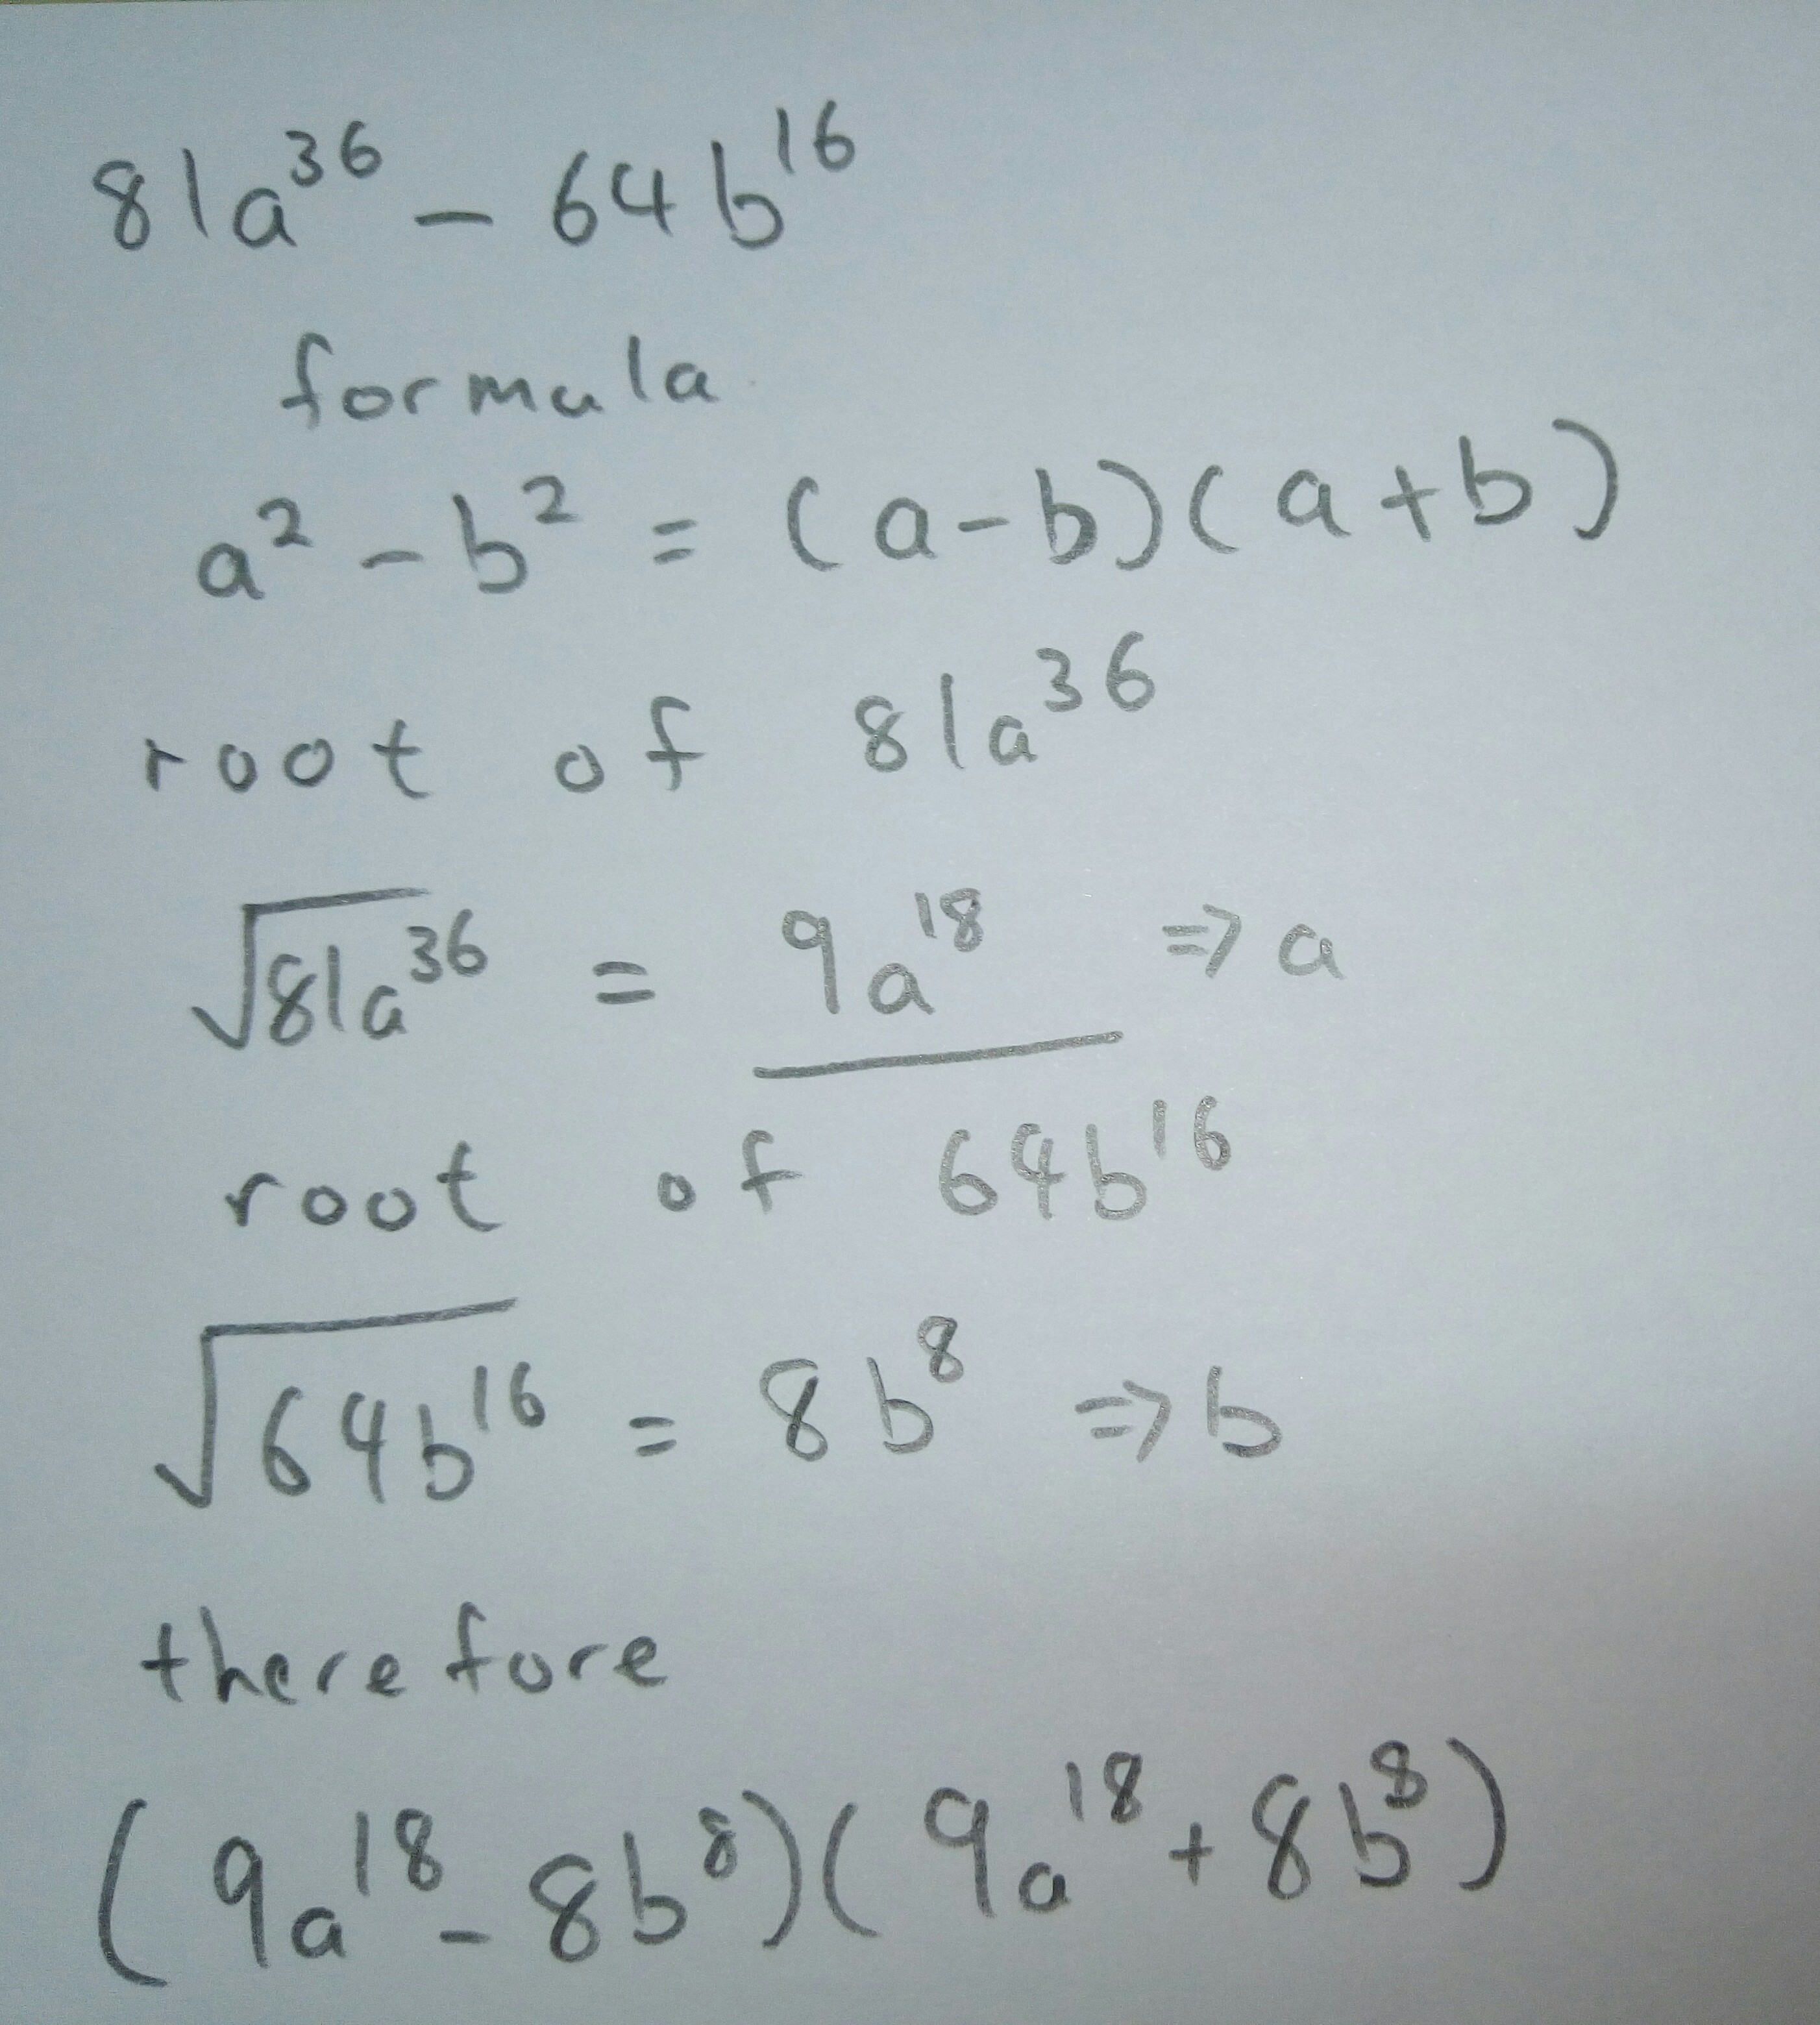 81a³⁶ - 64b¹⁶
formula
a² - b² = (a-b)(a+b)
root of 81a³⁶
√81a³⁶ = 9a¹⁸ => a
root of 64b¹⁶
√64b¹⁶ = 8b⁸ => b
therefore
(9a¹⁸ - 8b⁸)(9a¹⁸ + 8b⁸)